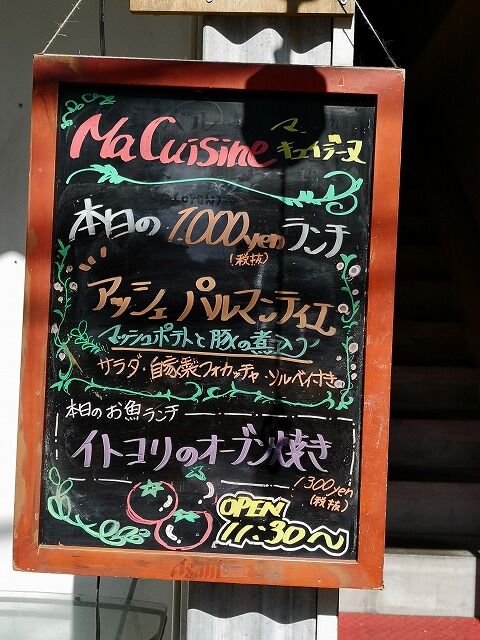 Ma Cuisine マ・キュイジーヌ
本日の 1000yen ランチ
(税抜)
アッシェ パルマンティエ
マッシュポテトと豚の煮込み
サラダ・自家製フォカッチャ・ソルベ付き
本日のお魚ランチ
イトヨリのオーブン焼き
1300yen
(税抜)
OPEN
11:30〜
Asahi